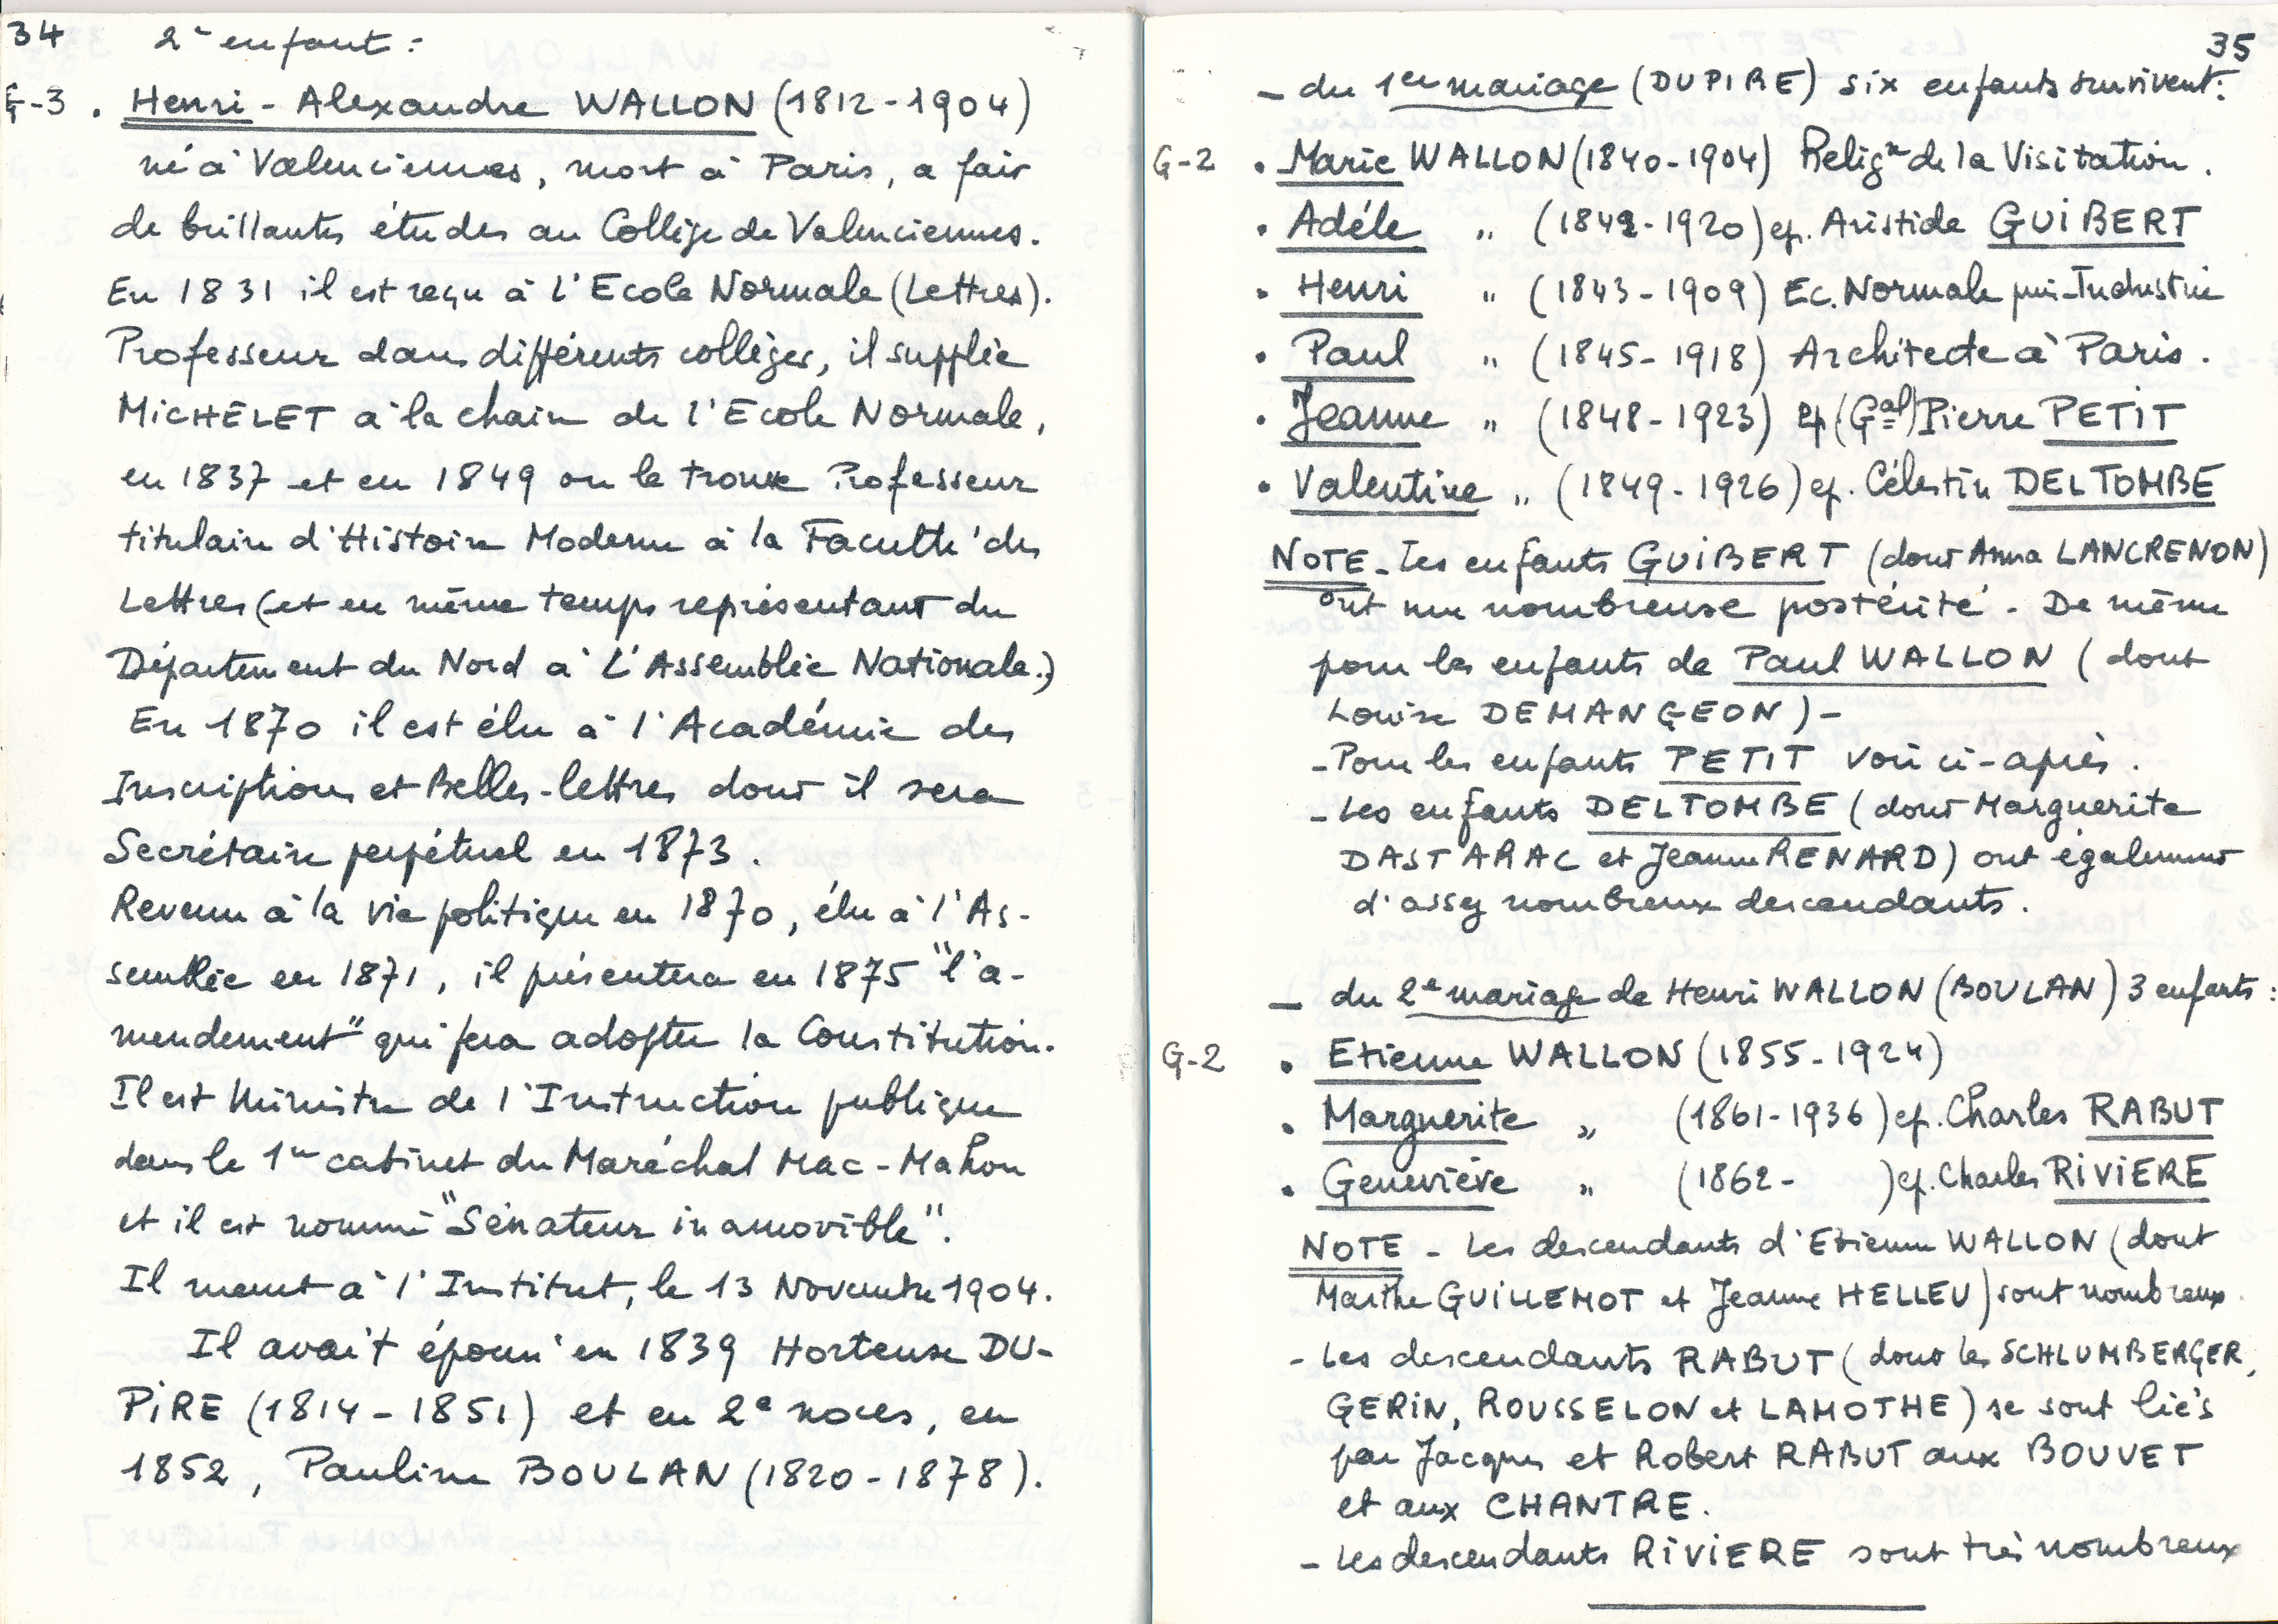 34
2e enfant :
G-3 . Henri-Alexandre WALLON (1812-1904)
né à Valenciennes, mort à Paris, a fait
de brillantes études au Collège de Valenciennes.
En 1831 il est reçu à L'Ecole Normale (Lettres).
Professeur dans différents collèges, il supplée
MICHELET à la chaire de l'Ecole Normale,
en 1837 et en 1849 on le trouve Professeur
titulaire d'Histoire Moderne à la Faculté des
Lettres (et en même temps représentant du
Département du Nord à L'Assemblée Nationale.)
En 1870 il est élu à l'Académie des
Inscriptions et Belles-lettres dont il sera
Secrétaire perpétuel en 1873.
Revenu à la vie politique en 1870, élu à l'As-
semblée en 1871, il présentera en 1875 "l'a-
mendement" qui fera adopter la Constitution.
Il est Ministre de l'Instruction publique
dans le 1er cabinet du Maréchal Mac-Mahon
et il est nommé "Sénateur inamovible".
Il meurt à l'Institut, le 13 Novembre 1904.
Il avait épousé en 1839 Hortense DU-
PIRE (1814-1851) et en 2e noces, en
1852, Pauline BOULAN (1820-1878).
35
- du 1er mariage (DUPIRE) six enfants survivent:
G-2 . Marie WALLON (1840-1904) Religse de la Visitation.
. Adéle " (1842-1920) ep. Aristide GUIBERT
. Henri " (1843-1909) Ec. Normale puis Industrie
. Paul " (1845-1918) Architecte à Paris.
. Jeanne " (1848-1923) ep (Gal) Pierre PETIT
. Valentine " (1849-1926) ep. Célestin DELTOMBE
NOTE - Les enfants GUIBERT (dont Anna LANCRENON)
ont une nombreuse postérité. De même
pour les enfants de Paul WALLON (dont
Louise DEMANGEON) -
- Pour les enfants PETIT voir ci-après.
- Les enfants DELTOMBE (dont Marguerite
DASTARAC et Jeanne RENARD) ont également
d'assez nombreux descendants.
- du 2e mariage de Henri WALLON (BOULAN) 3 enfants :
G-2 . Etienne WALLON (1855-1924)
. Marguerite " (1861-1936) ep. Charles RABUT
. Geneviève " (1862- ) ep. Charles RIVIERE
NOTE - Les descendants d'Etienne WALLON (dont
Marthe GUILLEMOT et Jeanne HELLEU) sont nombreux.
- Les descendants RABUT (dont les SCHLUMBERGER,
GERIN, ROUSSELON et LAMOTHE) se sont liés
par Jacques et Robert RABUT aux BOUVET
et aux CHANTRE.
- Les descendants RIVIERE sont très nombreux